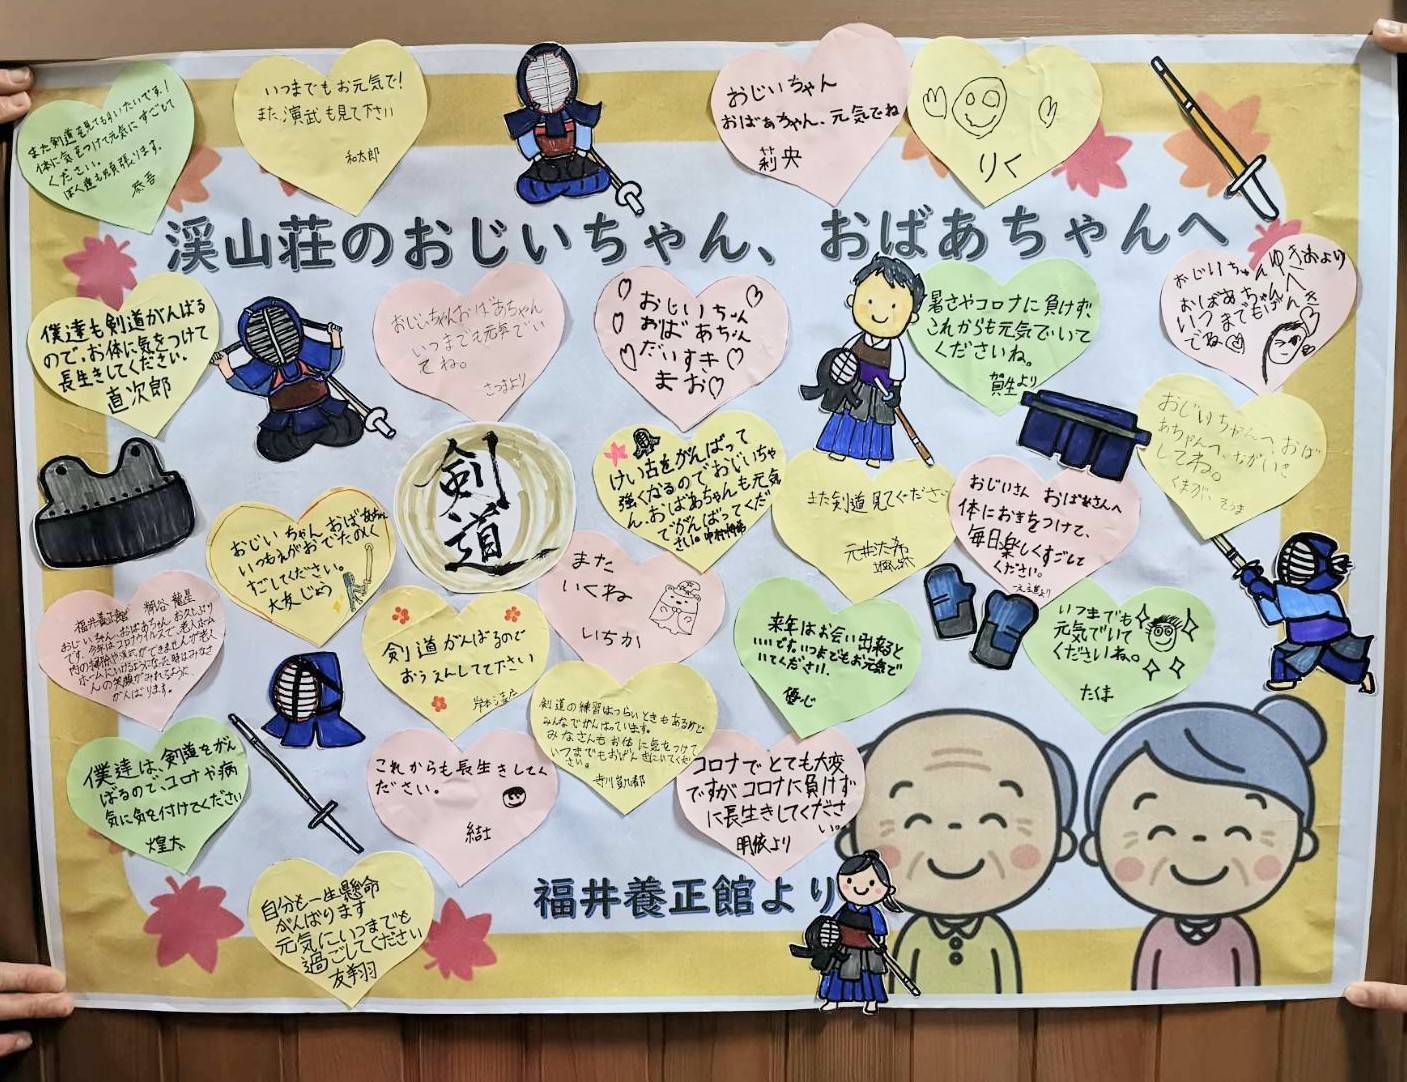 また剣道を見てもらいたいです!
体に気をつけて元気にすごして
ください。
ぼく達も頑張ります。
恭吾
いつまでもお元気で!
また演武も見て下さい
和太郎
おじいちゃん
おばぁちゃん、元気でね
莉央
りく
渓山荘のおじいちゃん、おばあちゃんへ
僕達も剣道がんばる
ので、お体に気をつけて
長生きしてください。
直次郎
おじいちゃんおばあちゃん
いつまでも元気でい
てね。
さつまより
おじいちゃん
おばあちゃん
だいすき
まお
暑さやコロナに負けず、
これからも元気でいて
くださいね。
賀生より
ゆきおより
おじいちゃんへ
おばあちゃんへ
いつまでもげんき
でね
おじいちゃんへ、おば
あちゃんへ、ながいき
してね。
くまが
剣道
けい古をがんばって
強くなるのでおじいちゃ
ん、おばあちゃんも元気
でがんばってくだ
さい。
また剣道見てください
おじいさん おばあさんへ
体にお気をつけて、
毎日楽しくすごして
ください。
おじいちゃん、おばあちゃん
いつもえがおでたのしく
すごしてください。
また
いくね
いちか
福井養正館
おじいちゃん、おばあちゃん お久しぶり
です。今年はコロナウイルスで、老人ホーム
がんばります。
剣道がんばるので
おうえんしてて下さい
来年はお会い出来ると
いいです。いつまでもお元気で
いてください!
優心
いつまでも
元気でいて
くださいね。
たくま
剣道の練習はつらいときもあるけど
みんなでがんばっています。
みなさんもお体に気をつけて
いつまでもおげんきにいてくだ
さい。
僕達は、剣道をがん
ばるので、コロナや病
気に気を付けてください
煌太
これからも長生きしてく
ださい。
結士
コロナでとても大変
ですがコロナに負けず
に長生きしてくださ
い。
明依より
自分も一生懸命
がんばります
元気にいつまでも
過ごしてください
友翔
福井養正館より